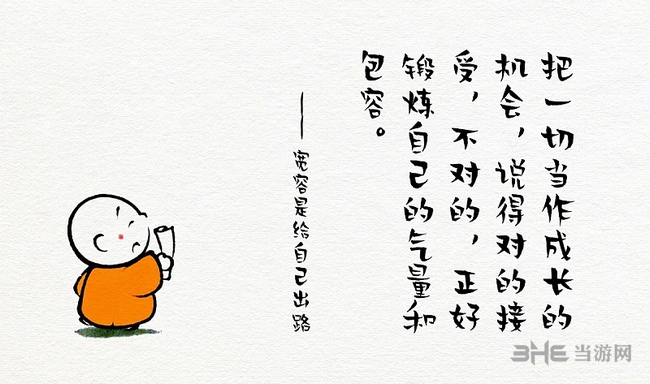 把一切当作成长的
机会，说得对的接
受，不对的，正好
锻炼自己的气量和
包容。
——宽容是给自己出路
3HE当游网